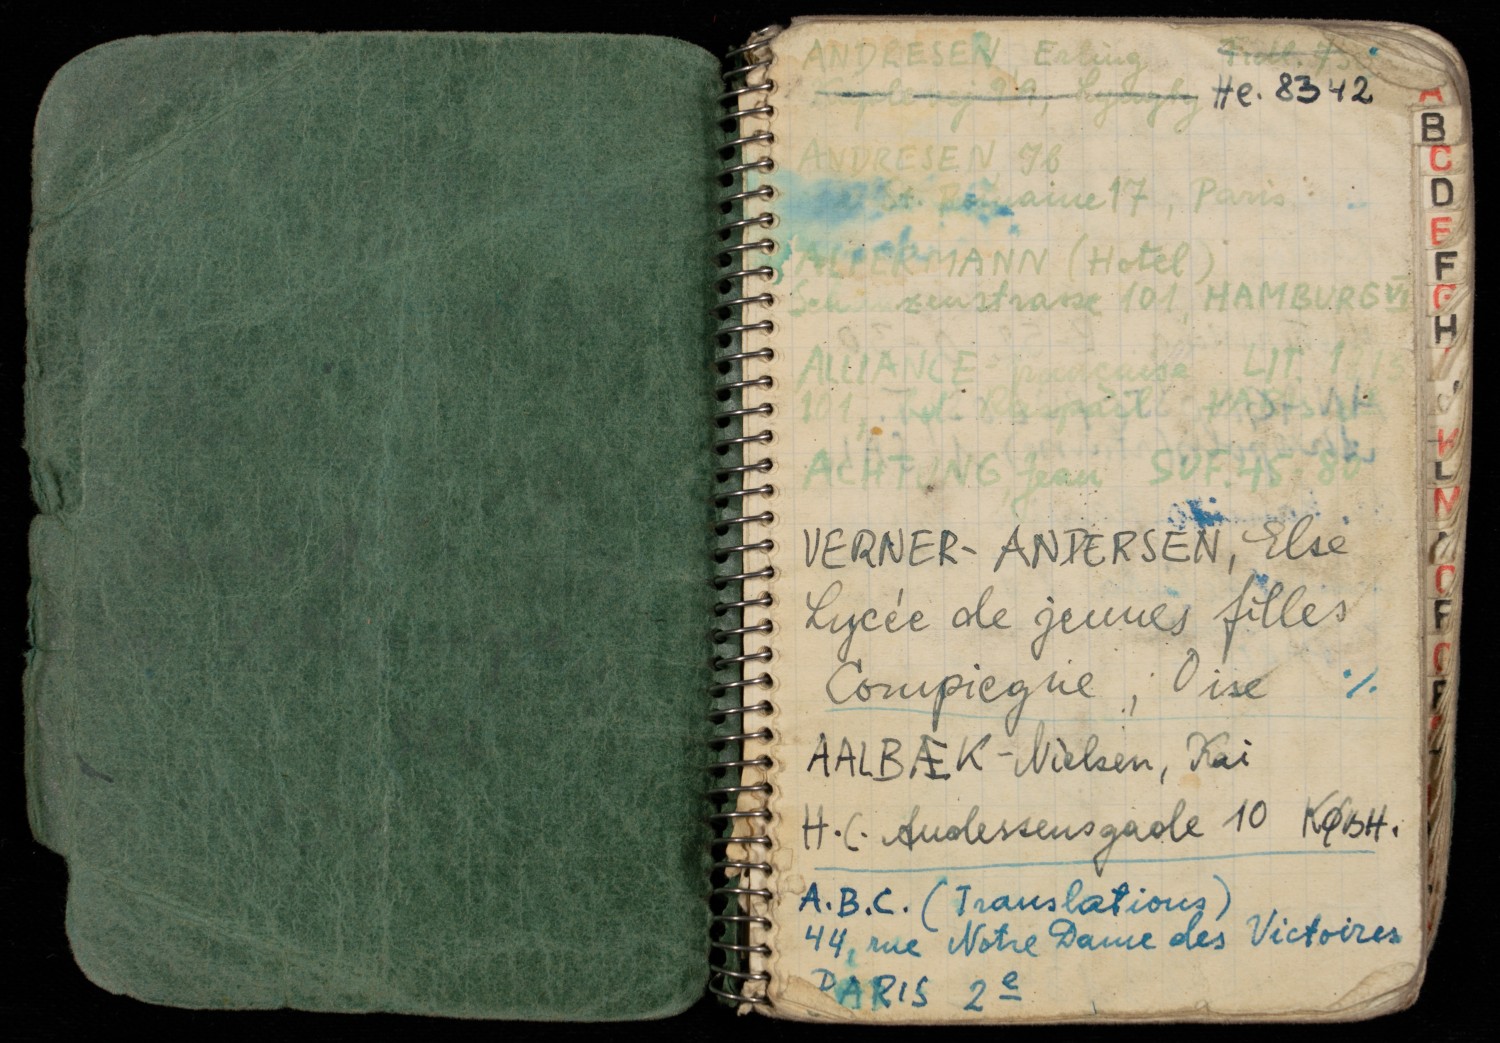 ANDRESEN, Erling
He. 8342
ANDRESEN,
Romaine 17, Paris.
ALTERMANN (Hotel)
101, HAMBURG VI
ALLIANCE française LIT
101, Bd. Raspail
ACHTUNG Jean SUF. 45 80
VERNER-ANDERSEN, Else
Lycée de jeunes filles
Compiegne, Oise %
AALBÆK-Nielsen, Kai
H.C. Andersensgade 10 KØBH.
A.B.C. (Translations)
44, rue Notre Dame des Victoires
PARIS 2e
A
B
C
D
E
F
G
H
I
J
K
L
N